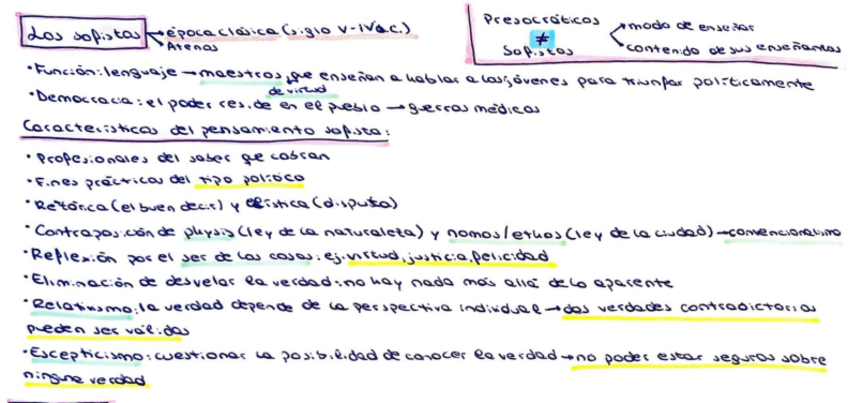 Los sofistas → época clásica (siglo V-IV a.C.)
Atenas
Presocráticos
≠
Sofistas
modo de enseñar
contenido de sus enseñanzas
• Función: lenguaje → maestros que enseñan a hablar a los jóvenes para triunfar políticamente
de virtud
• Democracia: el poder reside en el pueblo → guerras médicas
Características del pensamiento sofista:
• Profesionales del saber que cobran
• Fines prácticos del tipo político
• Retórica (el buen decir) y erística (disputa)
• Contraposición de physis (ley de la naturaleza) y nomos/ethos (ley de la ciudad) → convencionalismo
• Reflexión por el ser de las cosas: ej. virtud, justicia, felicidad
• Eliminación de desvelar la verdad: no hay nada más allá de lo aparente
• Relativismo: la verdad depende de la perspectiva individual → dos verdades contradictorias
pueden ser válidas
• Escepticismo: cuestionar la posibilidad de conocer la verdad → no poder estar seguros sobre
ninguna verdad